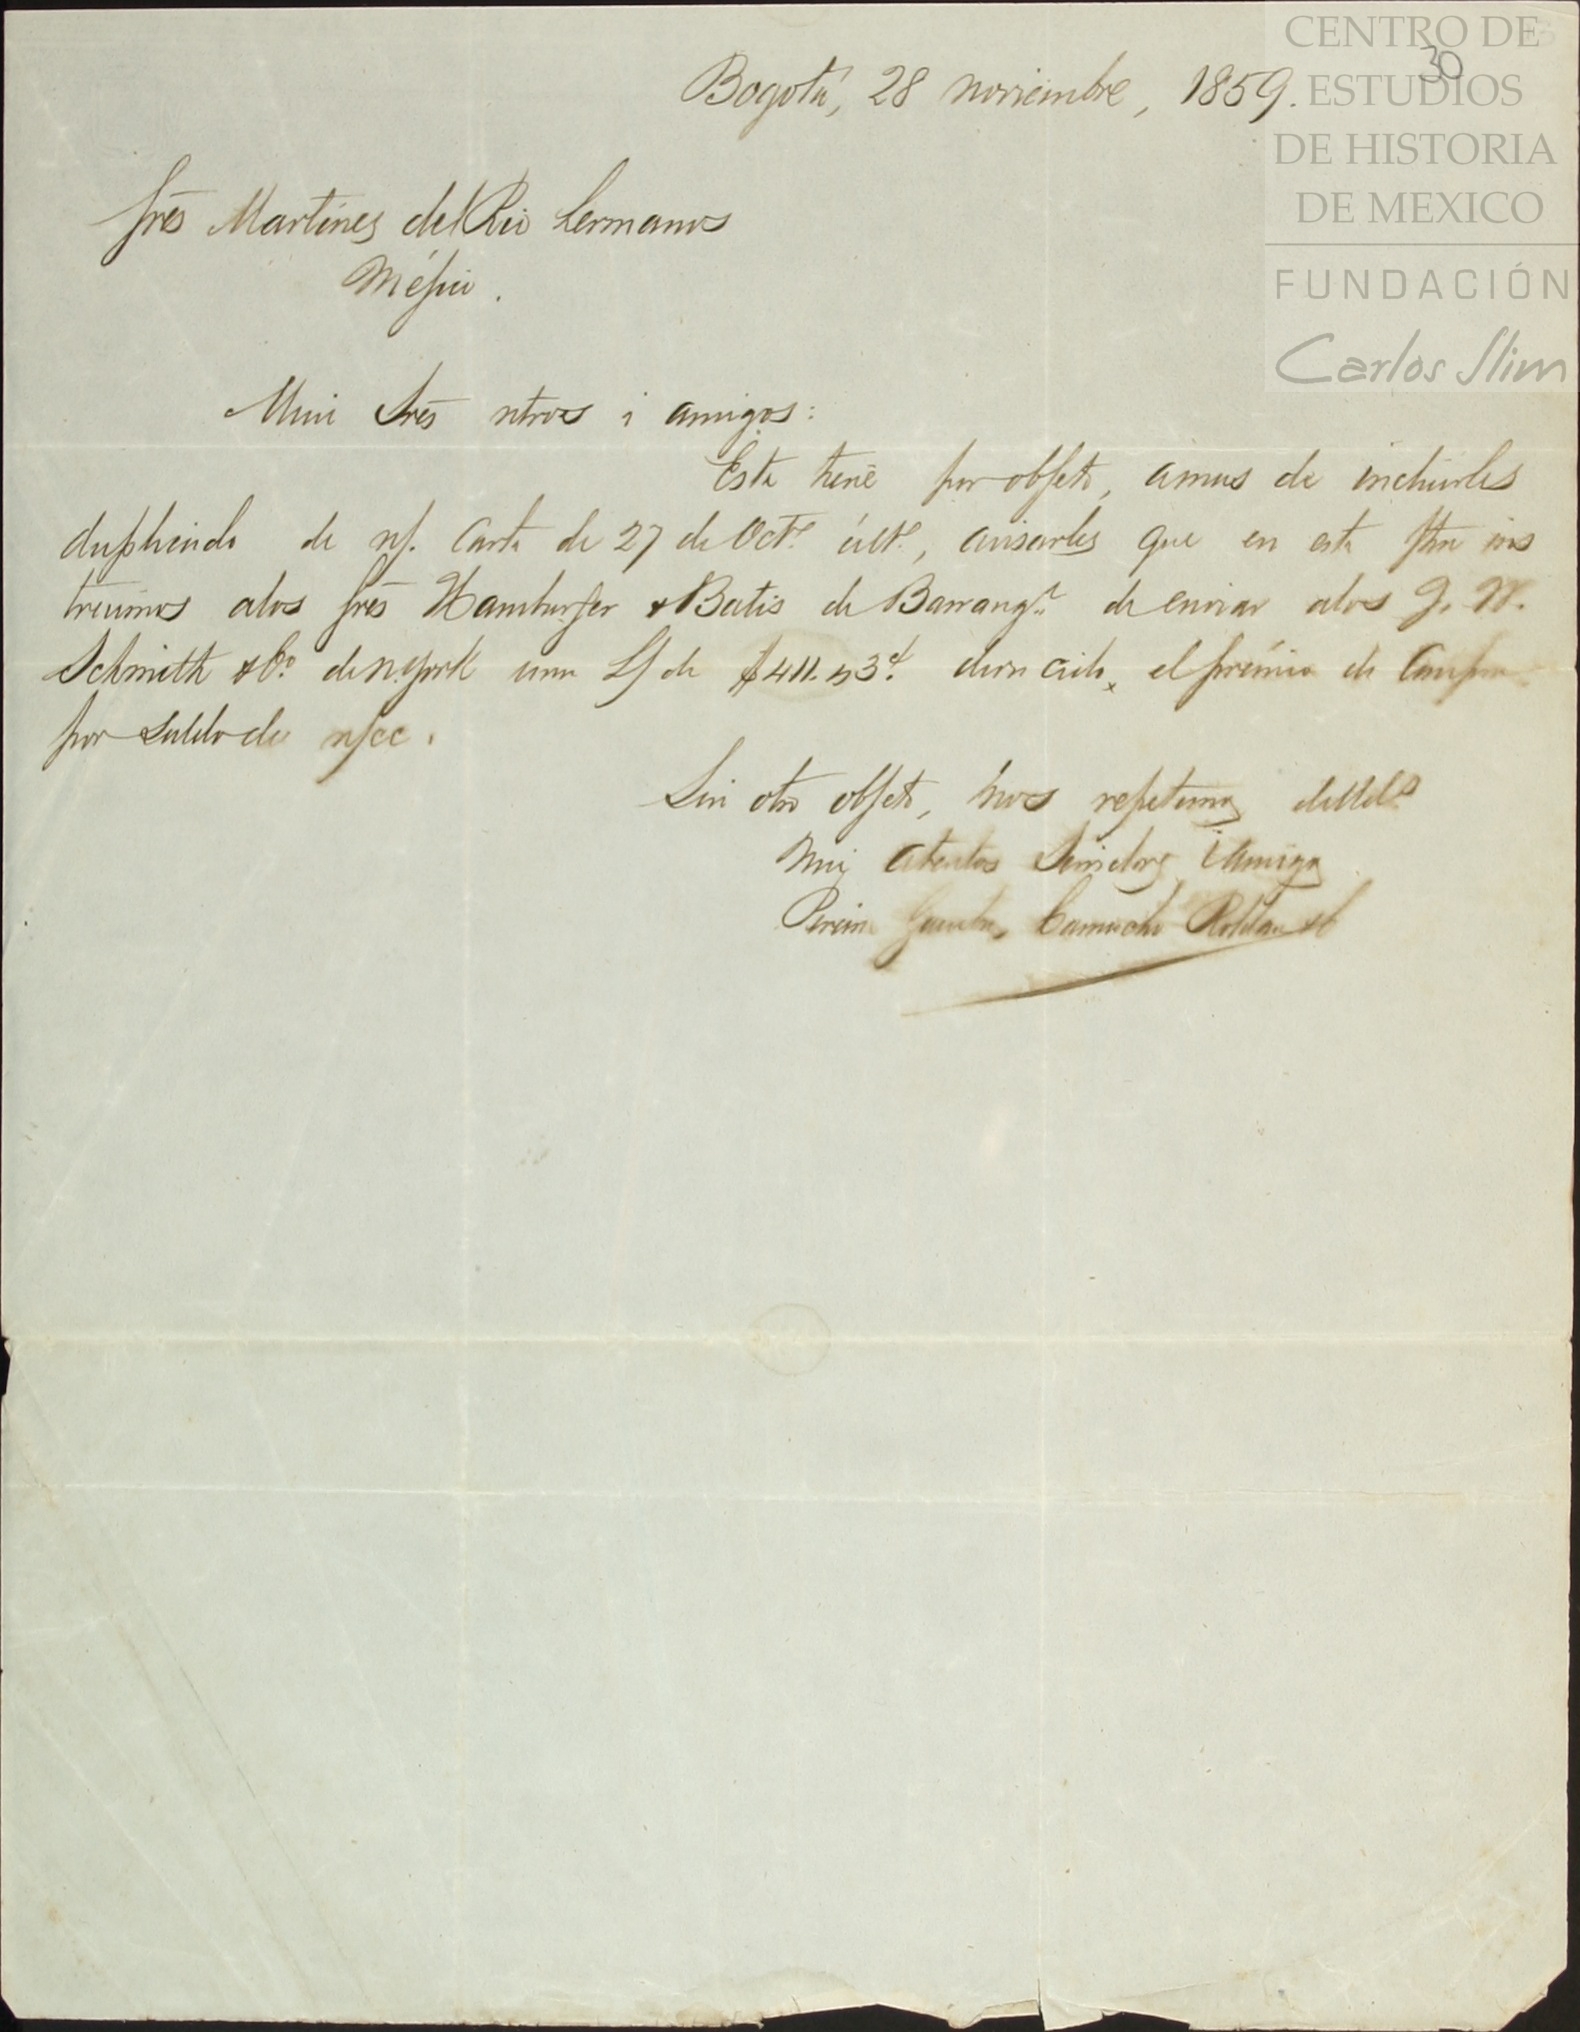 CENTRO DE
ESTUDIOS
DE HISTORIA
DE MEXICO
FUNDACIÓN
Carlos Slim
30
Bogotá, 28 noviembre, 1859.
Sres Martínez del Rio hermanos
Méjico.
Mui Sres ntros i amigos:
Esta tiene por objeto, amas de incluirles
duplicado de n/. carta de 27 de Octe últo, avisarles que en esta fha ins
truimos alos Sres Hamburger & Batis de Barranqa de enviar alos J. W.
Schmith & Co. de N. York una L/ de $411.53 el premio de
por saldo de n/cc.
Sin otro objeto, nos repetimos de Uds
mui atentos Servidores i amigos
Pereira Gamba, Camacho Roldan &C